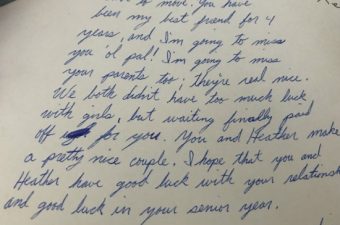 to move. You have
been my best friend for 4
years, and I'm going to miss
you 'ol pal! I'm going to miss
your parents too; they're real nice.
We both didn't have too much luck
with girls, but waiting finally paid
off for you. You and Heather make
a pretty nice couple. I hope that you and
Heather have good luck with your relationsh
and good luck in your senior year.